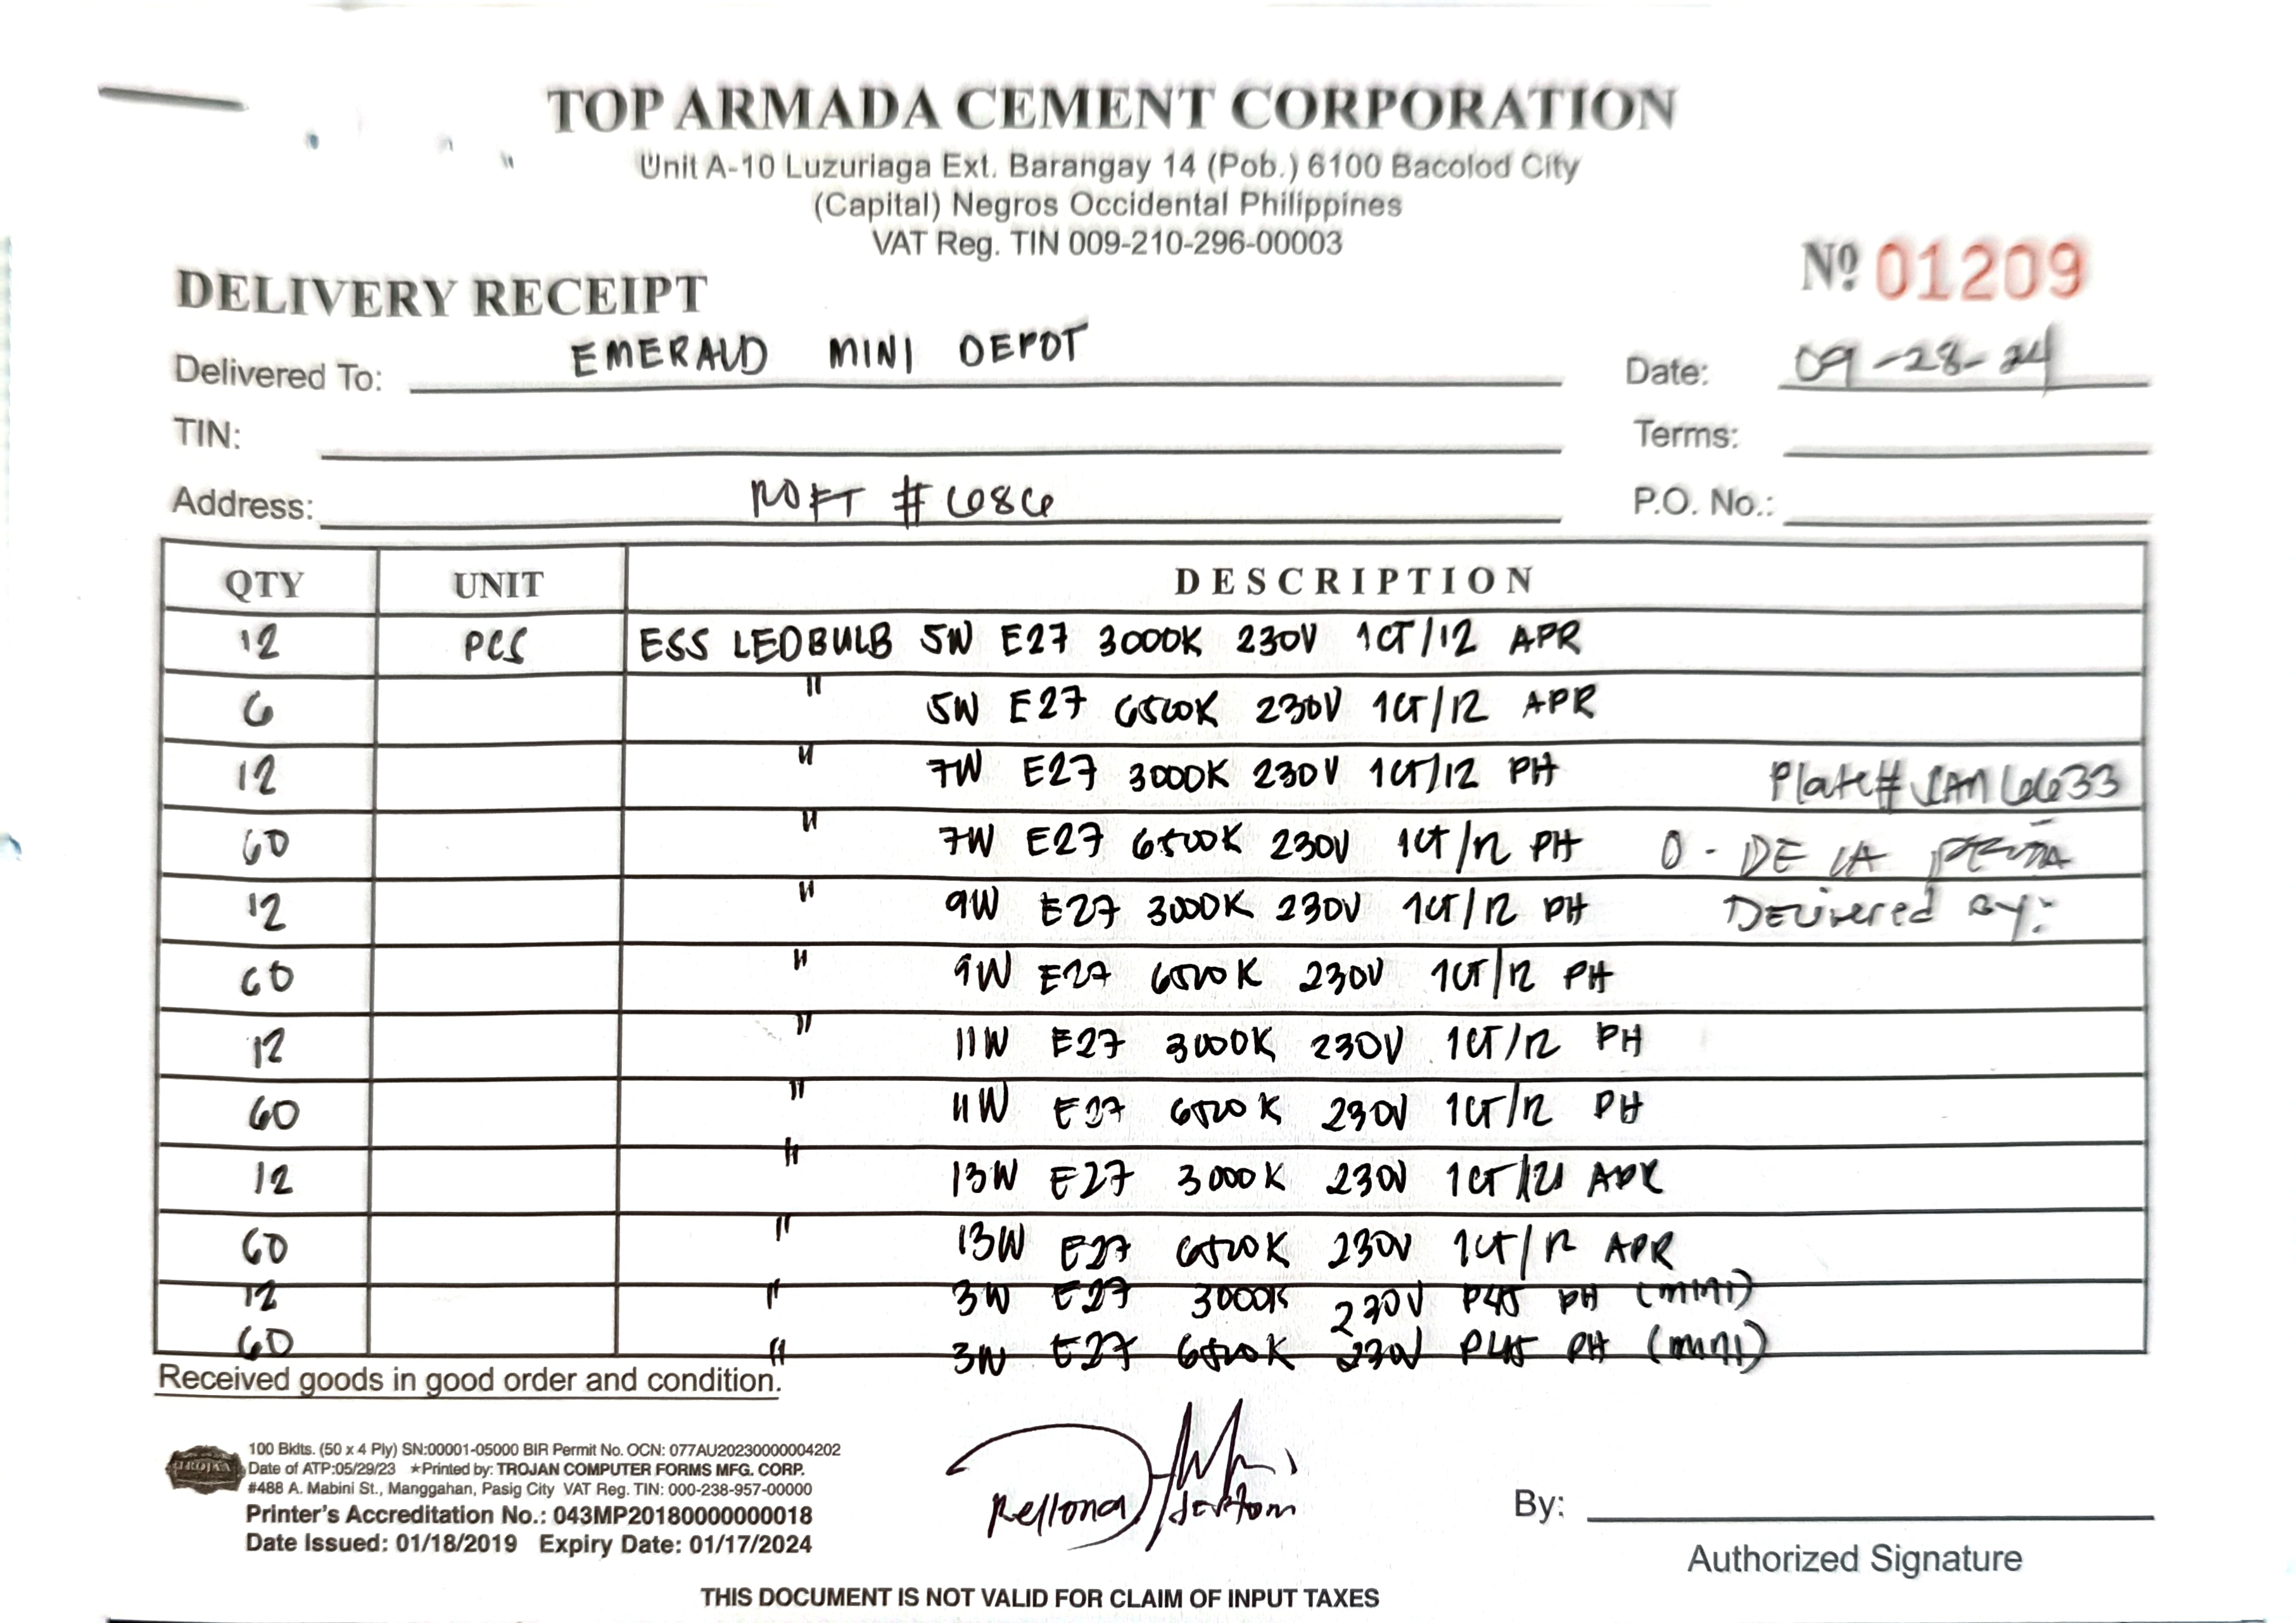 TOP ARMADA CEMENT CORPORATION
Unit A-10 Luzuriaga Ext. Barangay 14 (Pob.) 6100 Bacolod City
(Capital) Negros Occidental Philippines
VAT Reg. TIN 009-210-296-00003
DELIVERY RECEIPT
Nº 01209
Delivered To: EMERALD MINI DEPOT
Date: 09-28-24
TIN:
Terms:
Address: # 686
P.O. No.:
QTY UNIT DESCRIPTION
12 PCS ESS LEDBULB 5W E27 3000K 230V 1CT/12 APR
6 " 5W E27 6500K 230V 1CT/12 APR
12 " 7W E27 3000K 230V 1CT/12 PH Plate#
60 " 7W E27 6500K 230V 1CT/12 PH O - DE LA PEÑA
12 " 9W E27 3000K 230V 1CT/12 PH Delivered By:
60 " 9W E27 6500K 230V 1CT/12 PH
12 " 11W E27 3000K 230V 1CT/12 PH
60 " 11W E27 6500K 230V 1CT/12 PH
12 " 13W E27 3000K 230V 1CT/12 APR
60 " 13W E27 6500K 230V 1CT/12 APR
12 " 3W E27 3000K 230V PH (MINI)
60 " 3W E27 6500K 230V PH (MINI)
Received goods in good order and condition.
TROJAN
100 Bklts. (50 x 4 Ply) SN:00001-05000 BIR Permit No. OCN: 077AU20230000004202
Date of ATP:05/29/23 ★Printed by: TROJAN COMPUTER FORMS MFG. CORP.
#488 A. Mabini St., Manggahan, Pasig City VAT Reg. TIN: 000-238-957-00000
Printer's Accreditation No.: 043MP20180000000018
Date Issued: 01/18/2019 Expiry Date: 01/17/2024
By:
Authorized Signature
THIS DOCUMENT IS NOT VALID FOR CLAIM OF INPUT TAXES